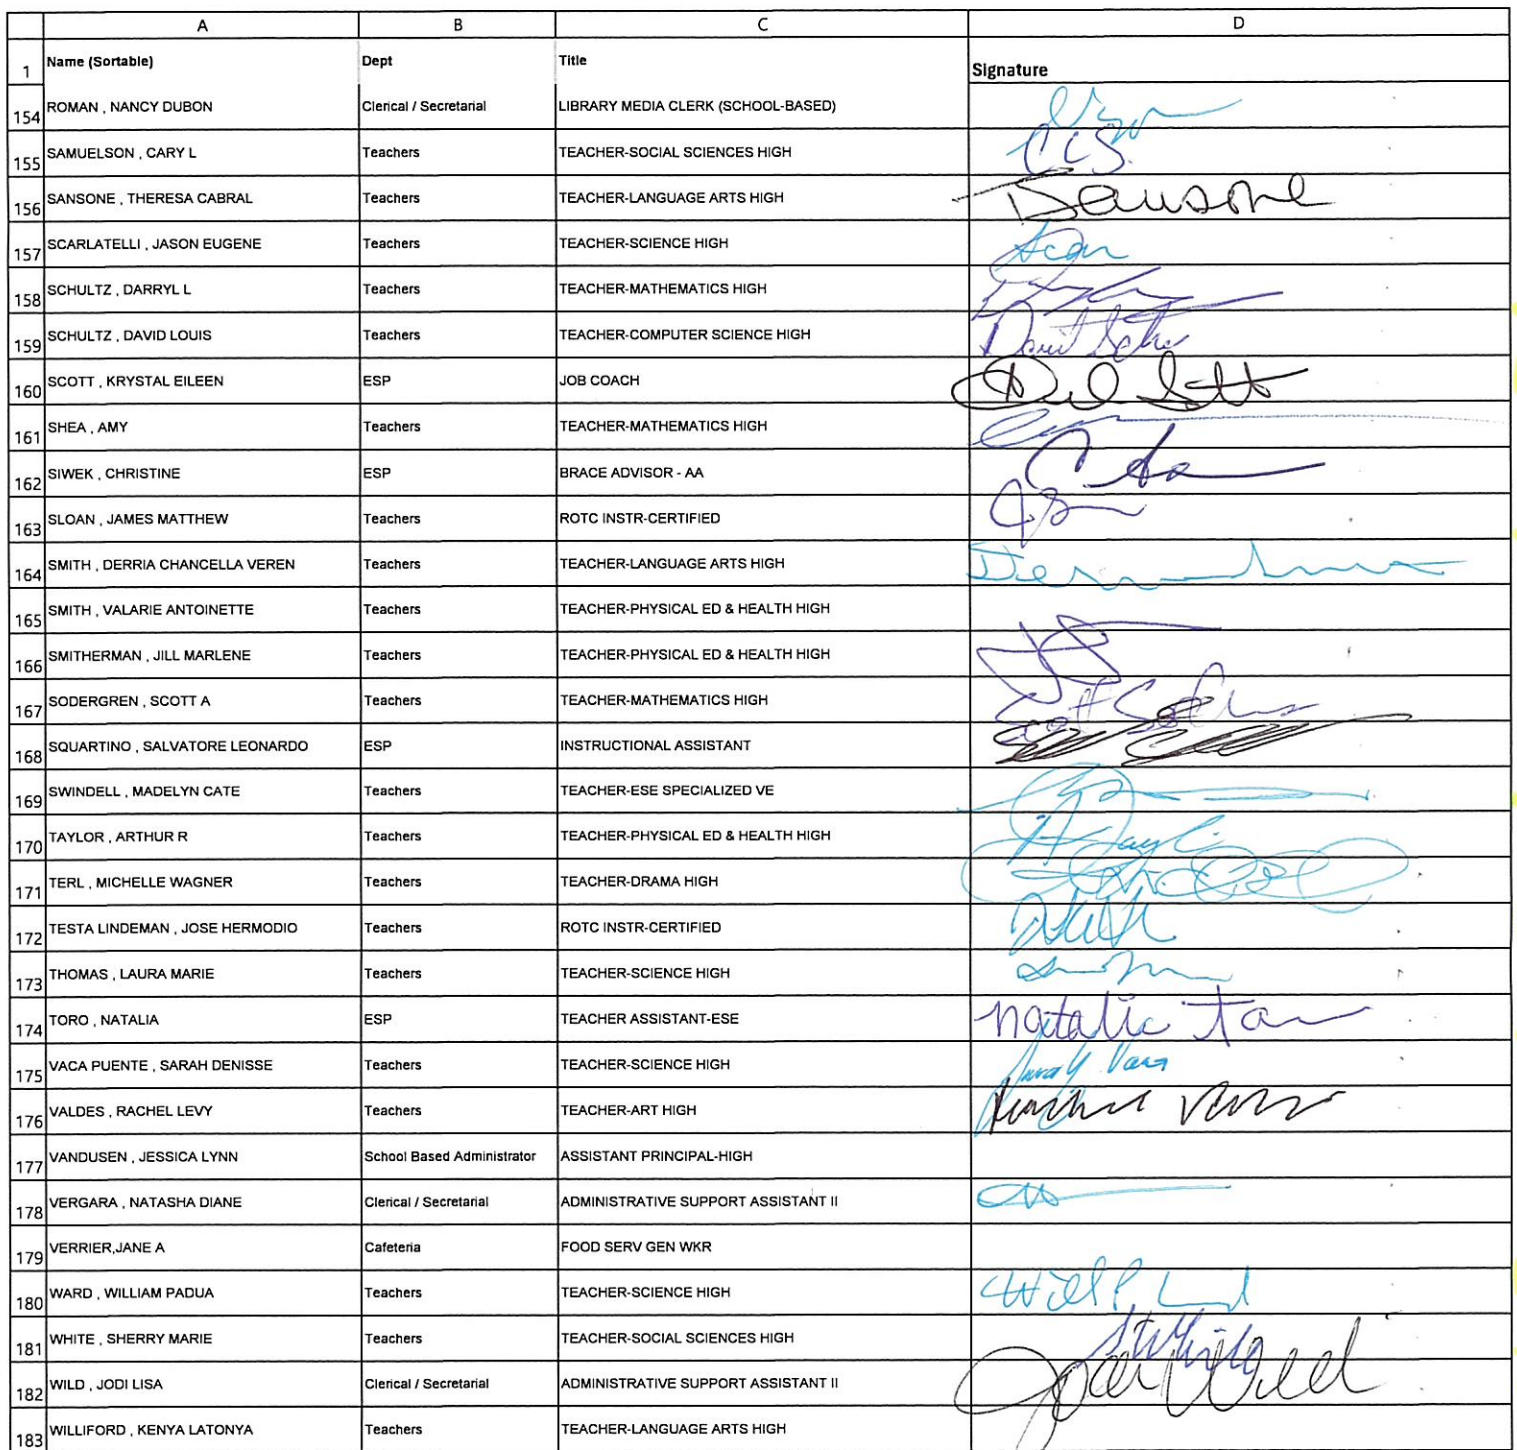 A B C D
1 Name (Sortable) Dept Title Signature
154 ROMAN , NANCY DUBON Clerical / Secretarial LIBRARY MEDIA CLERK (SCHOOL-BASED)
155 SAMUELSON , CARY L Teachers TEACHER-SOCIAL SCIENCES HIGH CLS.
156 SANSONE , THERESA CABRAL Teachers TEACHER-LANGUAGE ARTS HIGH Sansone
157 SCARLATELLI , JASON EUGENE Teachers TEACHER-SCIENCE HIGH
158 SCHULTZ , DARRYL L Teachers TEACHER-MATHEMATICS HIGH
159 SCHULTZ , DAVID LOUIS Teachers TEACHER-COMPUTER SCIENCE HIGH David
160 SCOTT , KRYSTAL EILEEN ESP JOB COACH
161 SHEA , AMY Teachers TEACHER-MATHEMATICS HIGH
162 SIWEK , CHRISTINE ESP BRACE ADVISOR - AA
163 SLOAN , JAMES MATTHEW Teachers ROTC INSTR-CERTIFIED
164 SMITH , DERRIA CHANCELLA VEREN Teachers TEACHER-LANGUAGE ARTS HIGH
165 SMITH , VALARIE ANTOINETTE Teachers TEACHER-PHYSICAL ED & HEALTH HIGH
166 SMITHERMAN , JILL MARLENE Teachers TEACHER-PHYSICAL ED & HEALTH HIGH
167 SODERGREN , SCOTT A Teachers TEACHER-MATHEMATICS HIGH Scott
168 SQUARTINO , SALVATORE LEONARDO ESP INSTRUCTIONAL ASSISTANT
169 SWINDELL , MADELYN CATE Teachers TEACHER-ESE SPECIALIZED VE
170 TAYLOR , ARTHUR R Teachers TEACHER-PHYSICAL ED & HEALTH HIGH
171 TERL , MICHELLE WAGNER Teachers TEACHER-DRAMA HIGH
172 TESTA LINDEMAN , JOSE HERMODIO Teachers ROTC INSTR-CERTIFIED
173 THOMAS , LAURA MARIE Teachers TEACHER-SCIENCE HIGH
174 TORO , NATALIA ESP TEACHER ASSISTANT-ESE
175 VACA PUENTE , SARAH DENISSE Teachers TEACHER-SCIENCE HIGH
176 VALDES , RACHEL LEVY Teachers TEACHER-ART HIGH
177 VANDUSEN , JESSICA LYNN School Based Administrator ASSISTANT PRINCIPAL-HIGH
178 VERGARA , NATASHA DIANE Clerical / Secretarial ADMINISTRATIVE SUPPORT ASSISTANT II
179 VERRIER,JANE A Cafeteria FOOD SERV GEN WKR
180 WARD , WILLIAM PADUA Teachers TEACHER-SCIENCE HIGH
181 WHITE , SHERRY MARIE Teachers TEACHER-SOCIAL SCIENCES HIGH
182 WILD , JODI LISA Clerical / Secretarial ADMINISTRATIVE SUPPORT ASSISTANT II Jodi Wild
183 WILLIFORD , KENYA LATONYA Teachers TEACHER-LANGUAGE ARTS HIGH